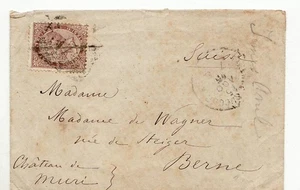 Suisse
Madame
Madame de Wagner
née de Steiger
Château de
Muri }
Berne